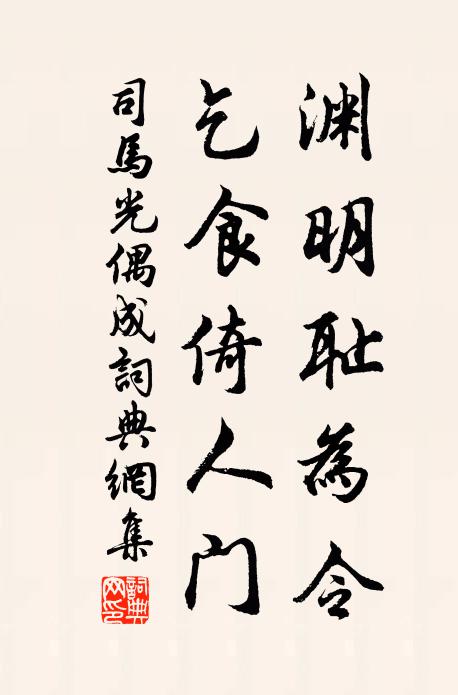 渊明耻為令
乞食倚人门
司馬光偶成詞典網集
詞典网印